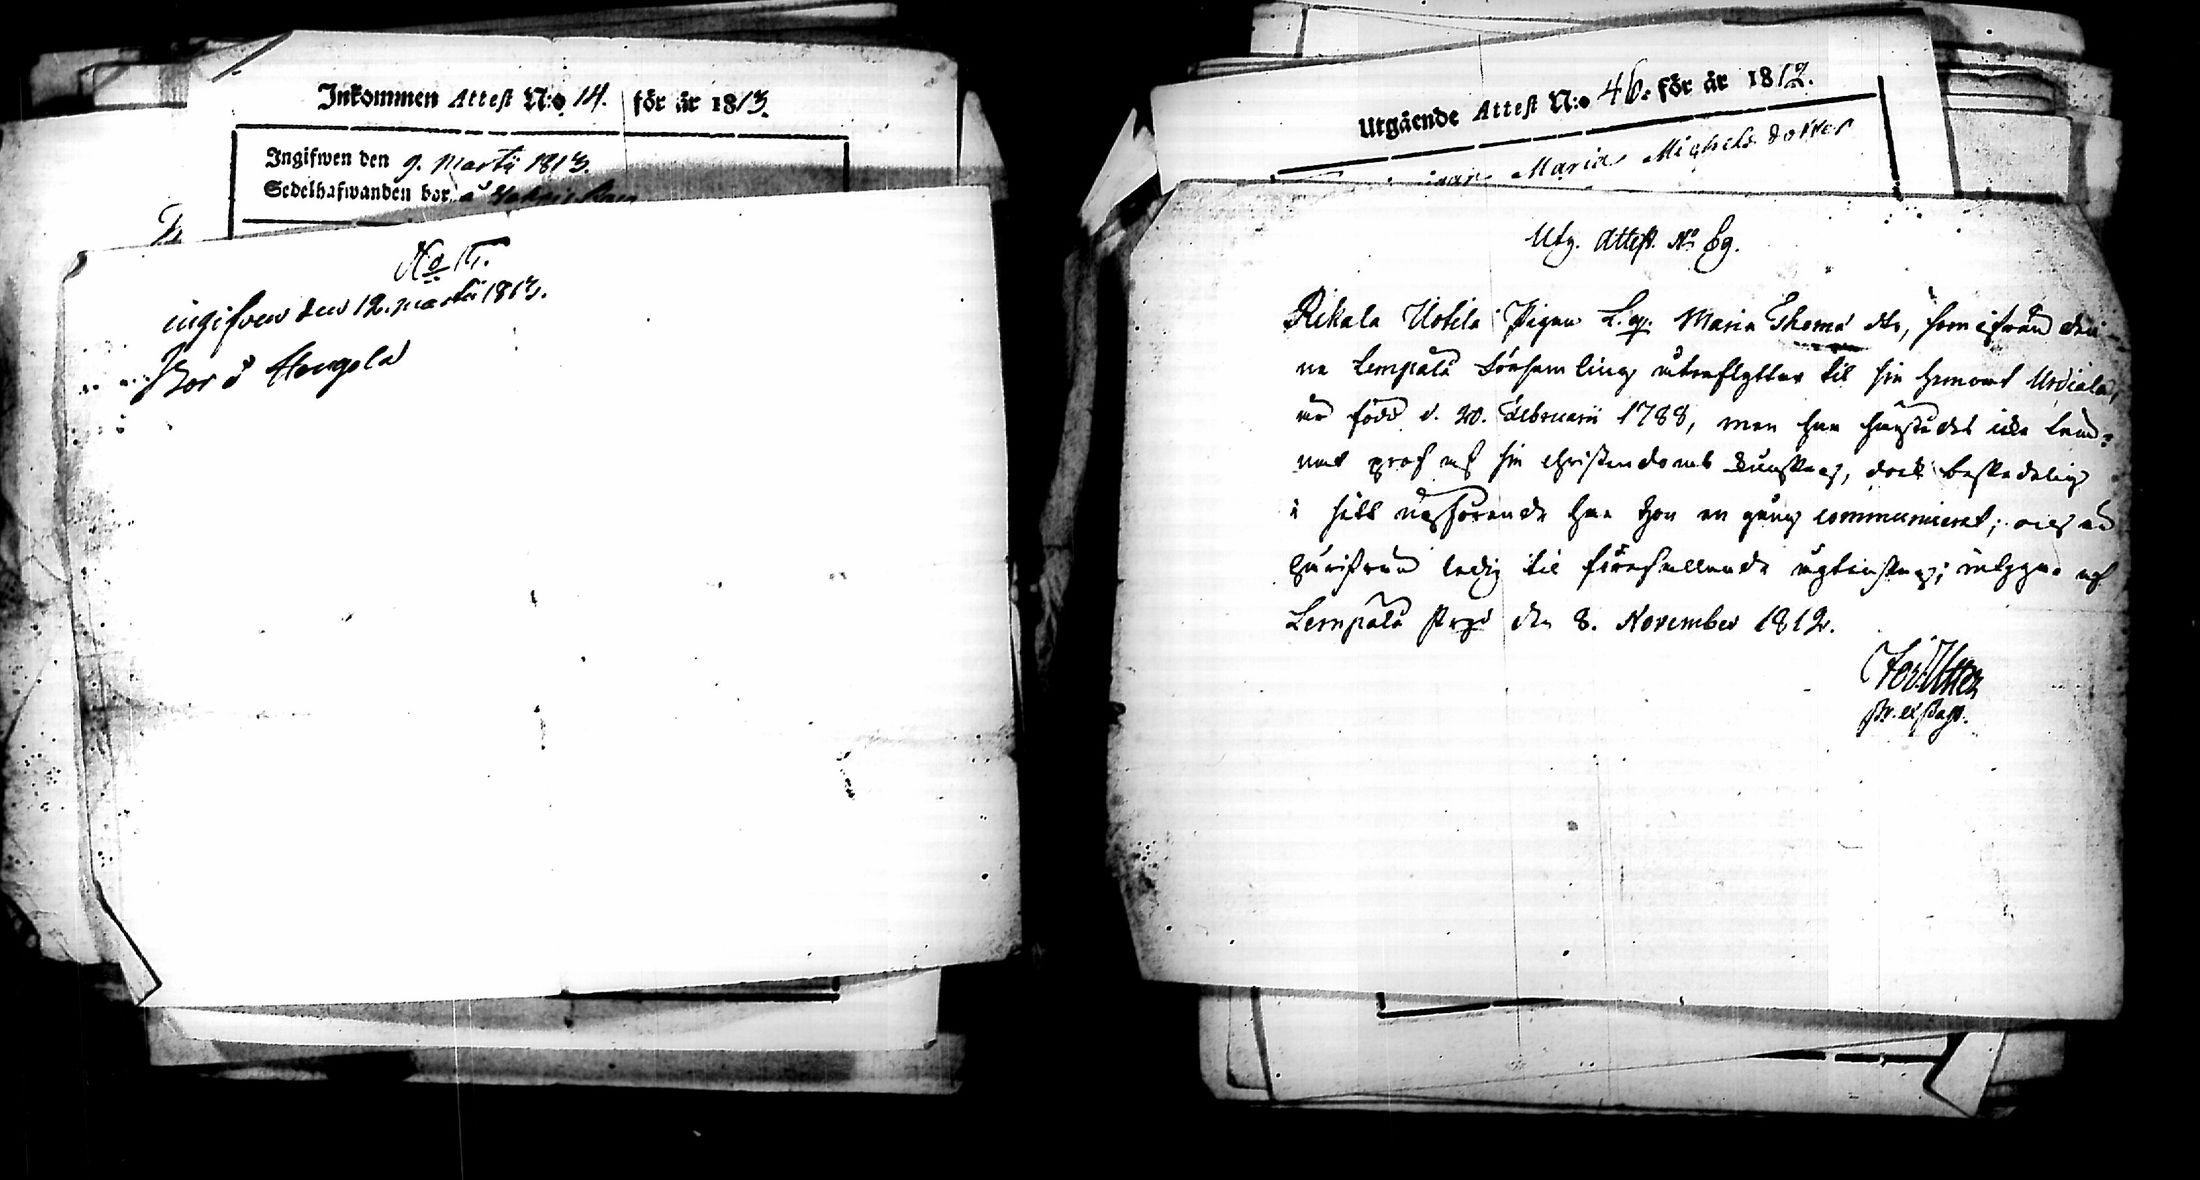 Inkommen Attest N:o 14. för år 1813.
Ingifwen den 9. Martii 1813.
Sedelhafwanden bor å
No 15.
ingifven den 12. Martii 1813.
Bor å Hongola
Utgående Attest N:o 46. för år 1812.
Maria Michelsdotter
Utg. Attest. No 69.
Rikala Uotila Pigan L. q. Maria Thomæ dtr, som ifrån den-
na Lempälä Församling utneflyttar til sin hemort Urdiala,
är född d. 20. Februarii 1788, men har härstädes icke lem-
nat prof af sin Christendoms kunskap, dock beskedelig
i sitt upförande har hon en gång communicerat; och är
härifrån ledig til förefallande ägtenskap; intygar af
Lempälä Prgd den 8. November 1812.